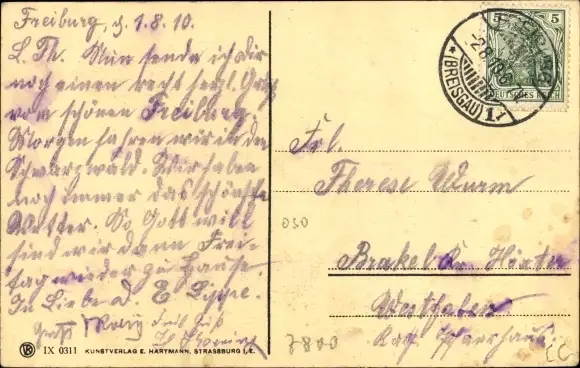 Freiburg, d. 1.8.10.
L. Th. Nun sende ich Dir
noch einen recht herzl. Gruß
vom schönen Freiburg.
Morgen fahren wir in den
Schwarzwald. Wir haben
noch immer das schönste
Wetter. So Gott will
sind wir dann Frei-
tag wieder zu Hause.
In Liebe d. E.
Frl.
Therese Wurm
030
Brakel Kr. Höxter
Westfalen
Kath. Pfarrhaus.
7800
EG
5 5
DEUTSCHES REICH
* (BREISGAU) 1
IX 0311 KUNSTVERLAG E. HARTMANN, STRASSBURG i. E.